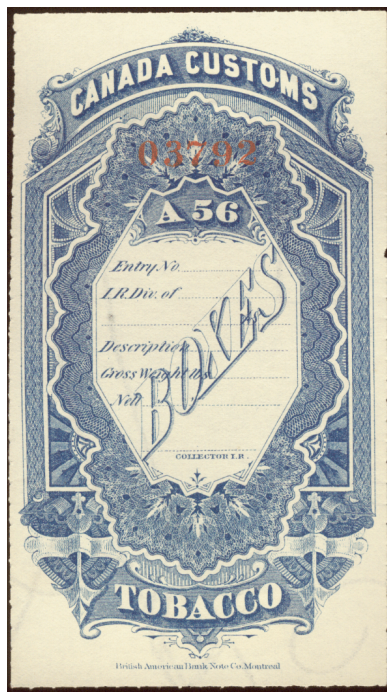 CANADA CUSTOMS
03792
A 56
Entry No.
I.R. Div. of
Description
Gross Weight lbs.
Nett
BOXES
COLLECTOR I.R.
TOBACCO
British American Bank Note Co. Montreal